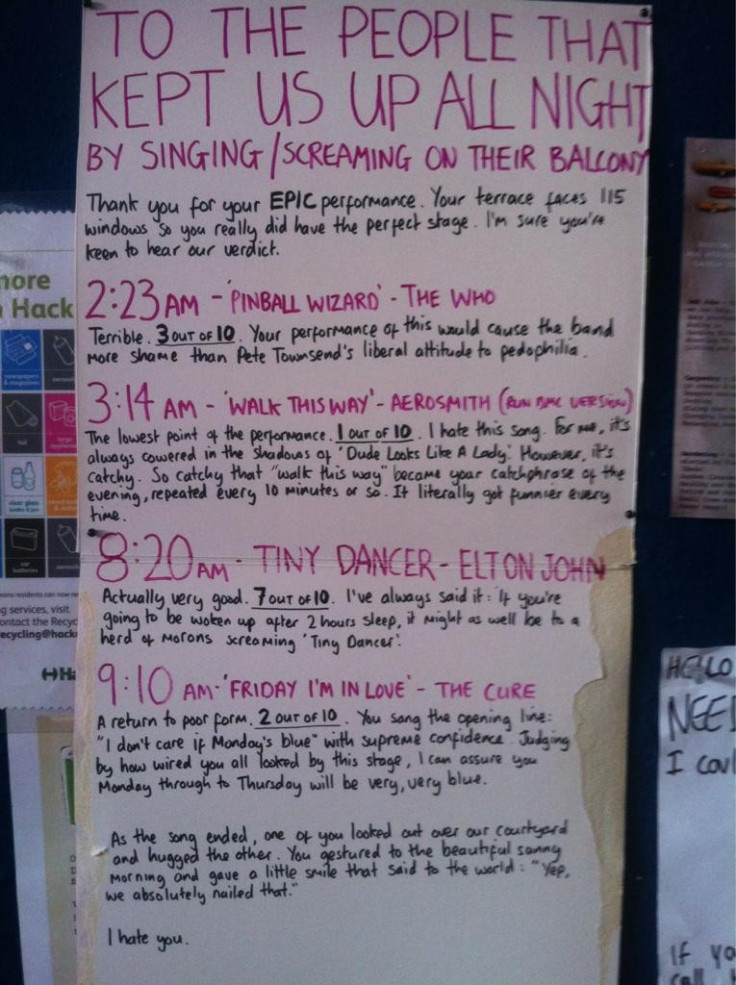 TO THE PEOPLE THAT
KEPT US UP ALL NIGHT
BY SINGING/SCREAMING ON THEIR BALCONY
Thank you for your EPIC performance. Your terrace faces 115
windows so you really did have the perfect stage. I'm sure you're
keen to hear our verdict.
2:23 AM - 'PINBALL WIZARD' - THE WHO
Terrible. 3 OUT OF 10. Your performance of this would cause the band
more shame than Pete Townsend's liberal attitude to pedophilia.
3:14 AM - 'WALK THIS WAY' - AEROSMITH (RUN DMC VERSION)
The lowest point of the performance. 1 OUT OF 10. I hate this song. For me, it's
always cowered in the shadows of 'Dude Looks Like A Lady'. However, it's
catchy. So catchy that "walk this way" became your catchphrase of the
evening, repeated every 10 minutes or so. It literally got funnier every
time.
8:20 AM - TINY DANCER - ELTON JOHN
Actually very good. 7 OUT OF 10. I've always said it: 'If you're
going to be woken up after 2 hours sleep, it might as well be to a
herd of morons screaming 'Tiny Dancer'.
9:10 AM - 'FRIDAY I'M IN LOVE' - THE CURE
A return to poor form. 2 OUT OF 10. You sang the opening line:
"I don't care if Monday's blue" with supreme confidence. Judging
by how wired you all looked by this stage, I can assure you
Monday through to Thursday will be very, very blue.
As the song ended, one of you looked out over our courtyard
and hugged the other. You gestured to the beautiful sunny
morning and gave a little smile that said to the world: "Yep,
we absolutely nailed that."
I hate you.
more
Hack
newspapers
& magazines
clear glass
car
batteries
g services, visit
ontact the Recyc
ecycling@hack
Ha
HELLO
NEED
I coul
If yo
call